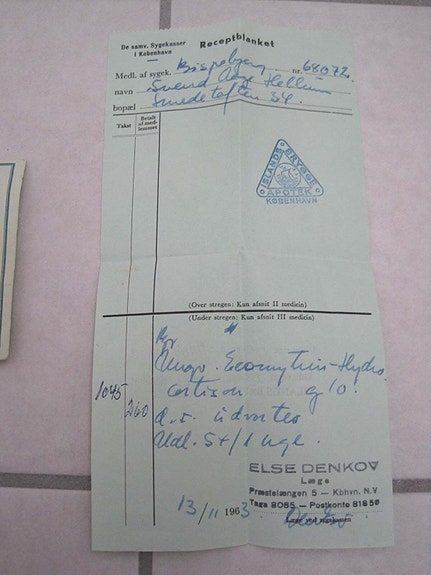 De samv. Sygekasser
i København
Receptblanket
Medl. af sygek. Bispebjerg nr. 68072
navn Svend Aage Hellum
bopæl Smedetoften 34.
Takst
Betalt
af med-
lemmet
ISLANDS BRYGGE
APOTEK
KØBENHAVN
(Over stregen: Kun afsnit II medicin)
(Under stregen: Kun afsnit III medicin)
Rp
Ungv. Hydro-
1045 cortison g 10.
260 d. s. udvortes
Udl. 5+/1 uge.
ELSE DENKOV
Læge
Præstelængen 5 — Kbhvn. N.V
Taga 8055 — Postkonte 81850
13/11 1963
Læge ved sygekassen